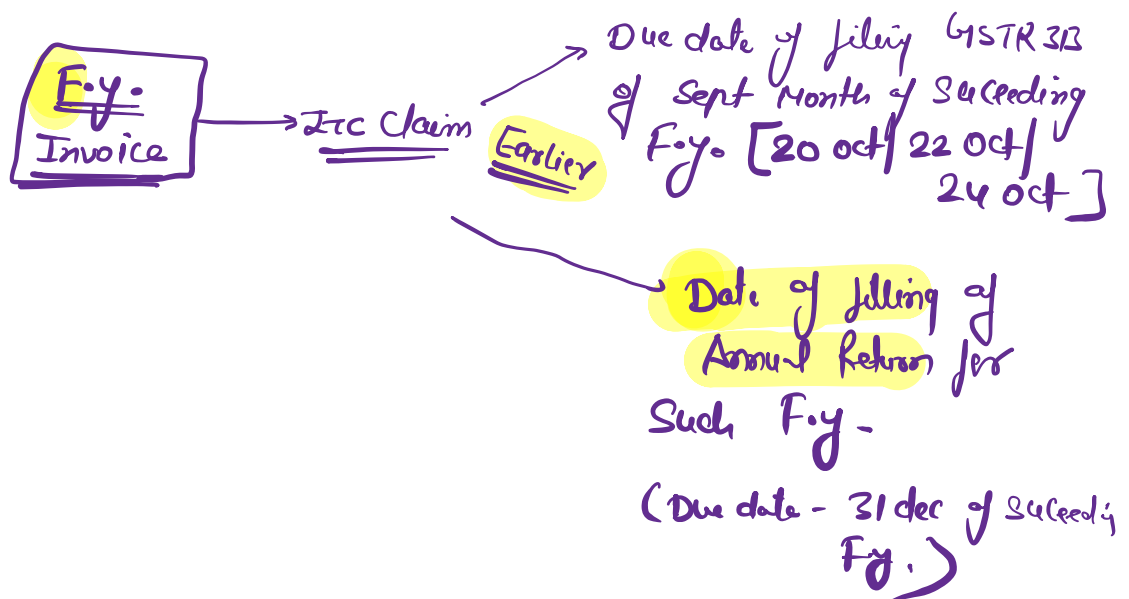 F.y.
Invoice
ITC Claim
Earlier
Due date of filing GSTR 3B
of Sept Month of Succeeding
F.y. [20 oct/ 22 Oct/
24 oct]
Date of filling of
Annual Return for
Such F.y.
(Due date - 31 dec of succeedi
F.y.)